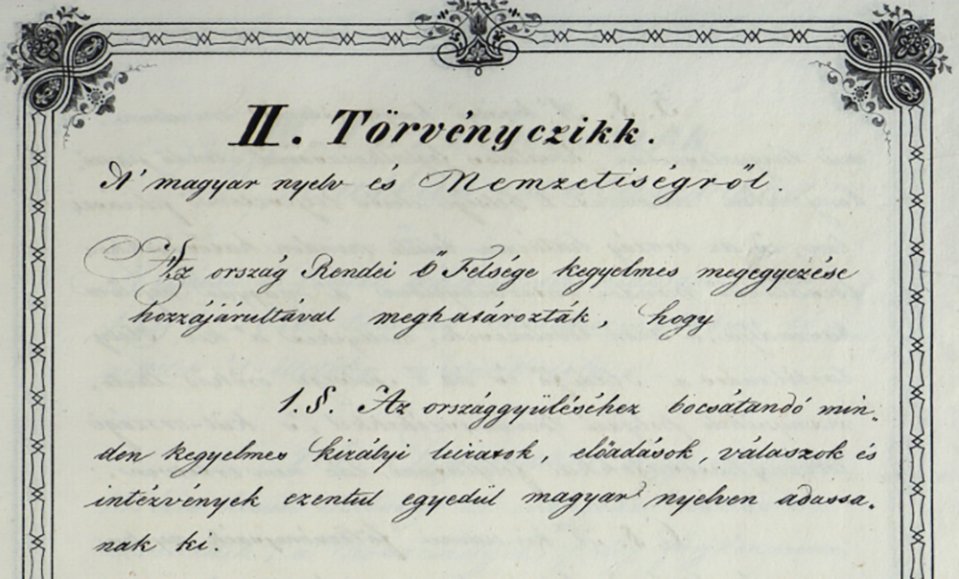 II. Törvényczikk.
A' magyar nyelv és Nemzetiségről.
Az ország Rendei ő Felsége kegyelmes megegyezése
hozzájárultával meghatározták, hogy
1. §. Az országgyüléséhez bocsátandó min-
den kegyelmes királyi leiratok, előadások, válaszok és
intézvények ezentul egyedül magyar nyelven adassa-
nak ki.